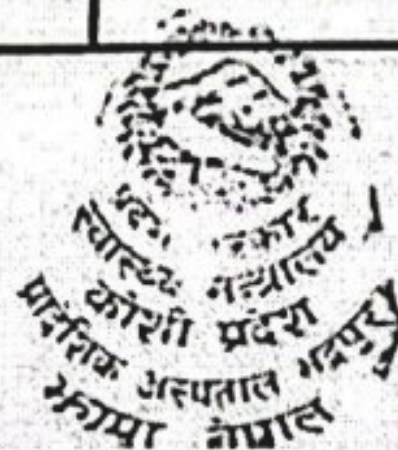 प्रदेश सरकार
स्वास्थ्य मन्त्रालय
कोशी प्रदेश
प्रादेशिक अस्पताल भद्रपुर
झापा नेपाल